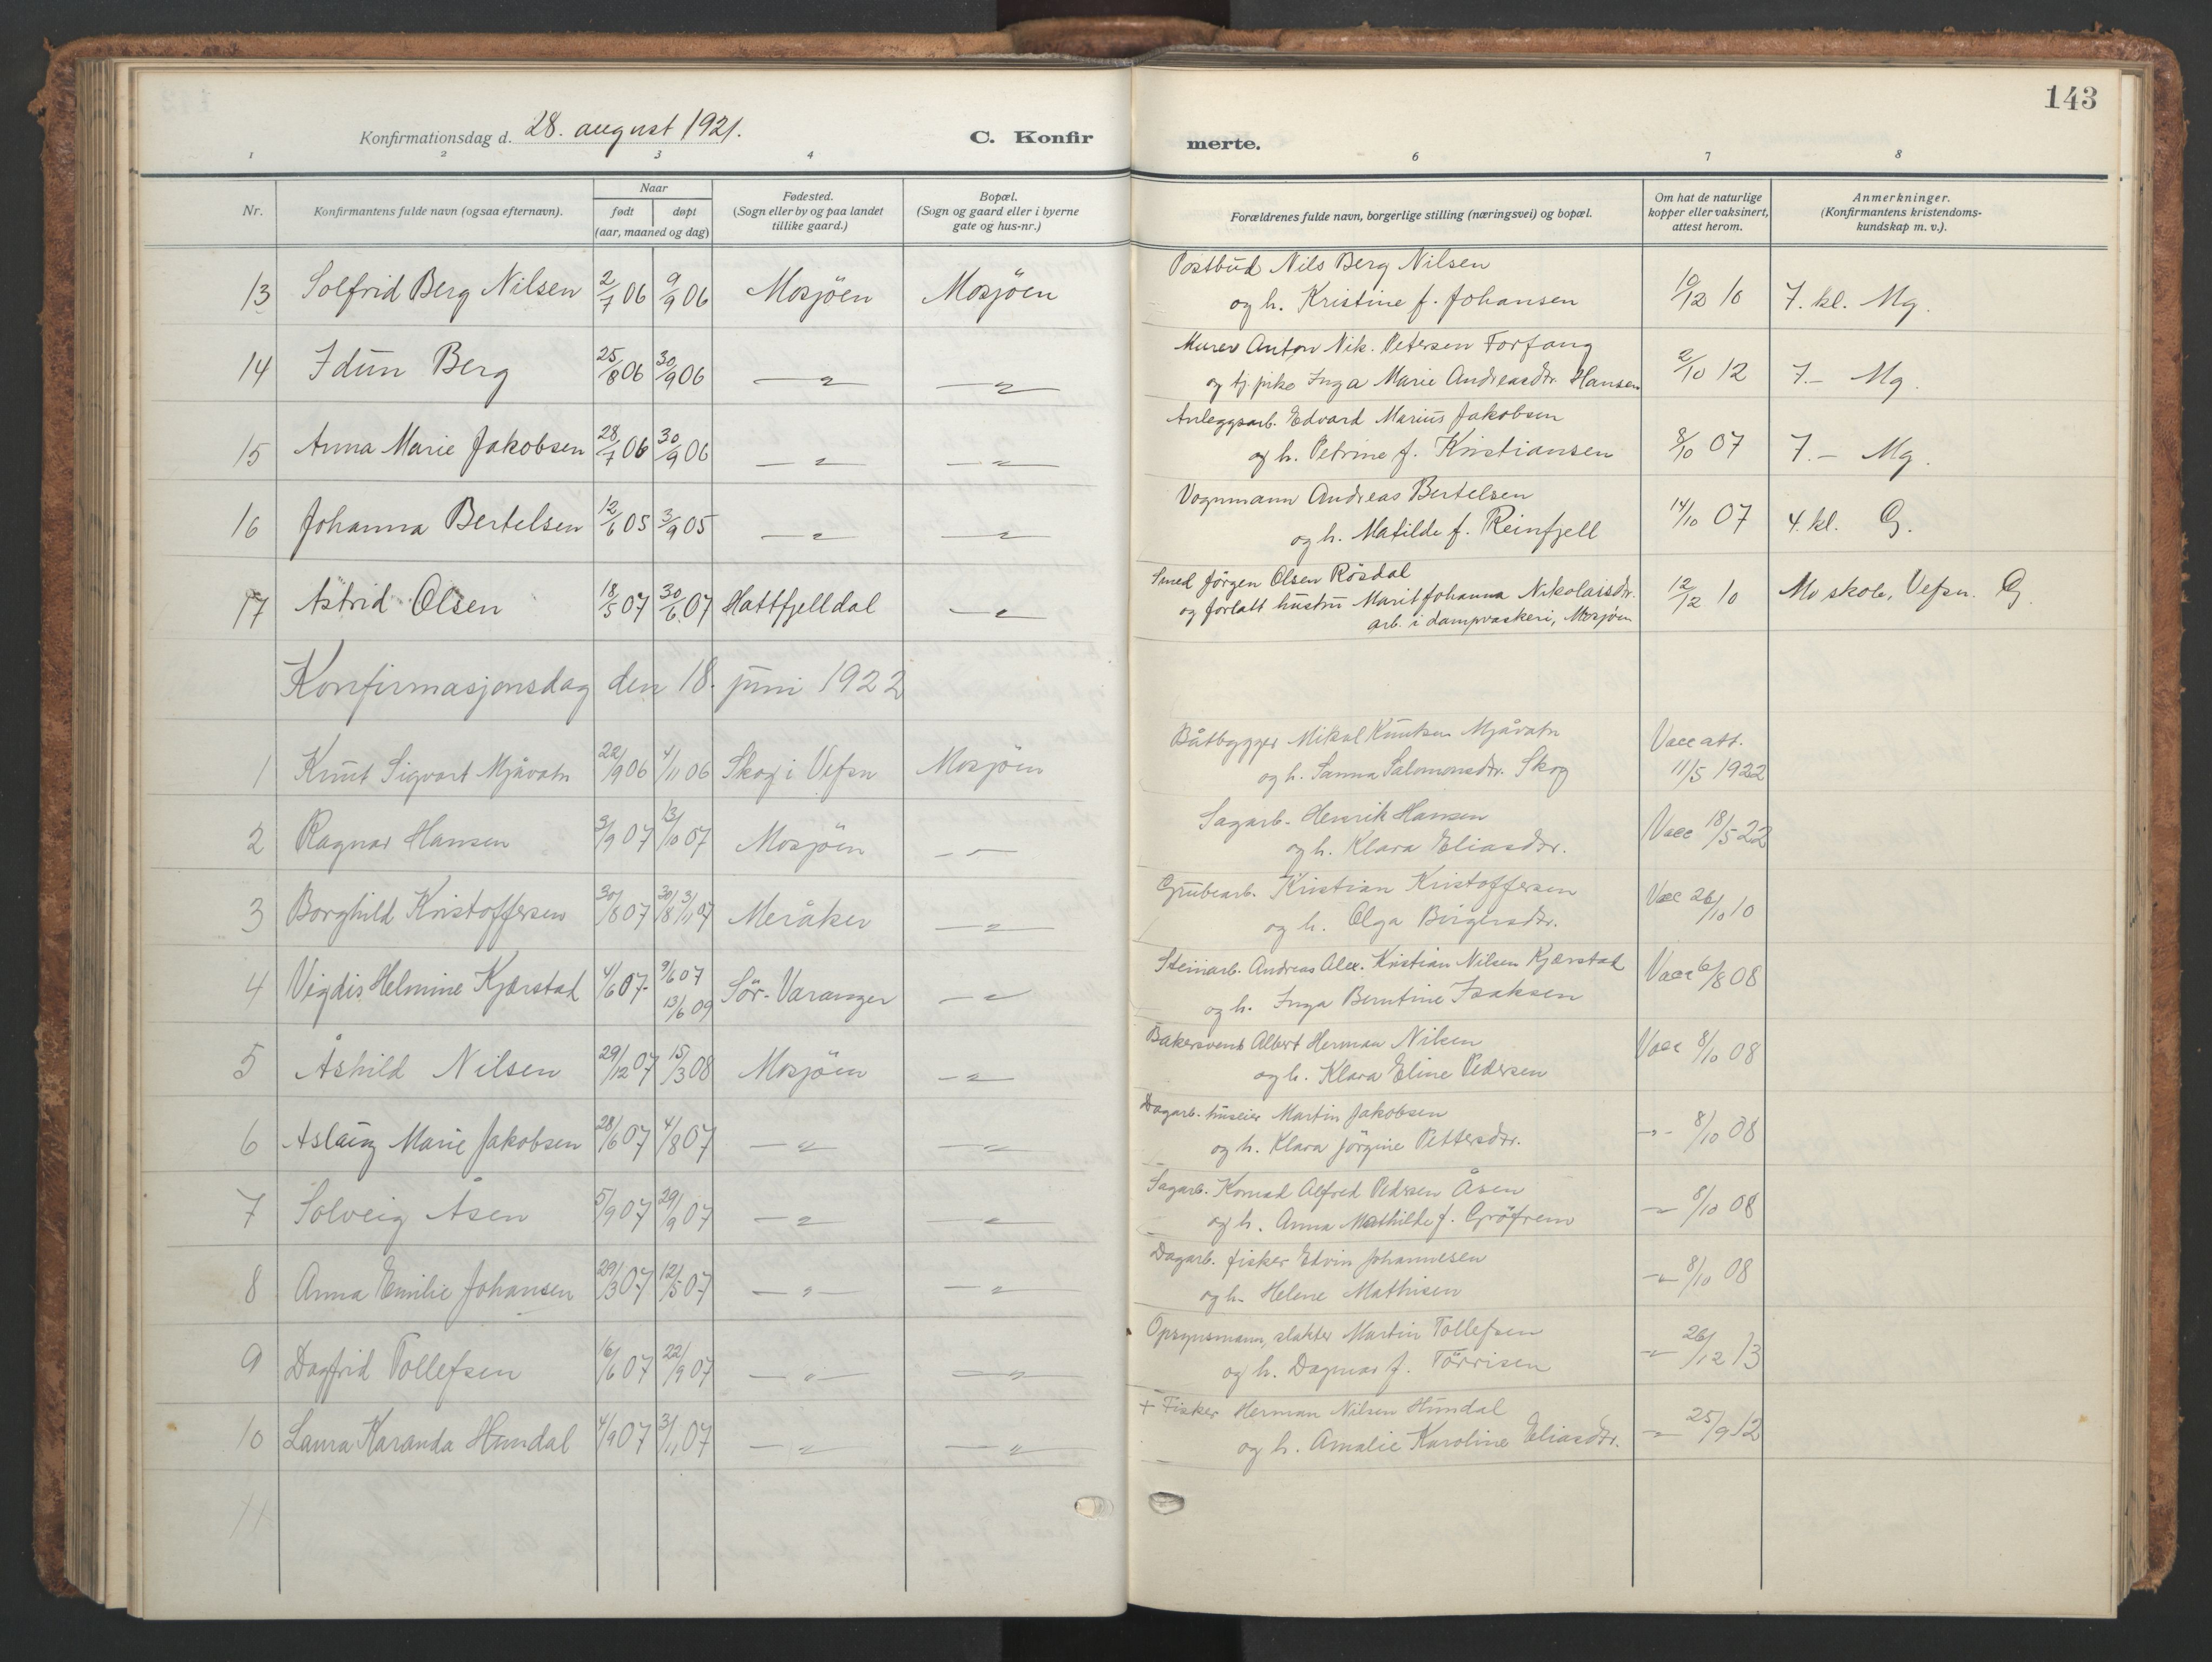 143
Konfirmationsdag d. 28. august 1921. C. Konfirmerte.
1 2 3 4 6 7 8
Nr. Konfirmantens fulde navn (ogsaa efternavn). Naar født døpt (aar, maaned og dag) Fødested. (Sogn eller by og paa landet tillike gaard.) Bopæl. (Sogn og gaard eller i byerne gate og hus-nr.) Forældrenes fulde navn, borgerlige stilling (næringsvei) og bopæl. Om hat de naturlige kopper eller vaksinert, attest herom. Anmerkninger. (Konfirmantens kristendoms-kundskap m. v.).
13 Solfrid Berg Nilsen 2/7 06 9/9 06 Mosjöen Mosjöen Postbud Nils Berg Nilsen
og h. Kristine f. Johansen 10/12 10 7. kl. Mg.
14 Idun Berg 25/8 06 30/9 06 — " — — " — Murer Anton Nik. Petersen Forfang
og tj. pike Inga Marie Andreasdtr. Hansen 2/10 12 7.– Mg.
15 Anna Marie Jakobsen 28/7 06 30/9 06 — " — — " — Anleggsarb. Edvard Marius Jakobsen
og h. Petrine f. Kristiansen 8/10 07 7.– Mg.
16 Johanna Bertelsen 12/6 05 3/9 05 — " — — " — Vognmann Andreas Bertelsen
og h. Matilde f. Reinfjell 14/10 07 4. kl. G.
17 Astrid Olsen 18/5 07 30/6 07 Hattfjelldal — " — Smed Jörgen Olsen Rösdal
og forlatt hustru Marit Johanna Nikolaisdtr.
arb. i dampvaskeri, Mosjöen 12/12 10 Mo skole, Vefsn. G
Konfirmasjonsdag den 18. juni 1922
1 Knut Sigvart Mjåvatn 22/9 06 4/11 06 Skog i Vefsn Mosjöen Båtbygger Mikal Knutsen Mjåvatn
og h. Sanna Salomonsdtr. Skog Vacc att. 11/5 1922
2 Ragnar Hansen 3/9 07 13/10 07 Mosjöen — " — Sagarb. Henrik Hansen
og h. Klara Eliasdtr. Vacc 18/5 22
3 Borghild Kristoffersen 30/8 07 30/8 3/11 07 Meråker — " — Grubearb. Kristian Kristoffersen
og h. Olga Birgersdtr. Vac 26/10 10
4 Vigdis Helmine Kjærstad 4/6 07 9/6 07 13/6 09 Sör-Varanger — " — Steinarb. Andreas Alex. Kristian Nilsen Kjærstad
og h. Inga Berntine Isaksen Vacc 6/8 08
5 Åshild Nilsen 29/12 07 15/3 08 Mosjöen — " — Bakersvend Albert Herman Nilsen
og h. Klara Eline Pedersen Vacc 8/10 08
6 Aslaug Marie Jakobsen 28/6 07 4/8 07 — " — — " — Dagarb. huseier Martin Jakobsen
og h. Klara Jörgine Pettersdtr. — " — 8/10 08
7 Solveig Åsen 5/9 07 29/9 07 — " — — " — Sagarb. Konrad Alfred Pedersen Åsen
og h. Anna Mathilde f. Gröfrem — " — 8/10 08
8 Anna Emilie Johansen 29/3 07 12/5 07 — " — — " — Dagarb. fisker Edvin Johannesen
og h. Helene Mathisen — " — 8/10 08
9 Dagfrid Tollefsen 16/6 07 22/9 07 — " — — " — Opsynsmann, slakter Martin Tollefsen
og h. Dagmar f. Törrisen — " — 26/12 13
10 Laura Karanda Hundal 4/9 07 3/11 07 — " — — " — + Fisker Herman Nilsen Hundal
og h. Amalie Karoline Eliasdtr. — " — 25/9 12
11